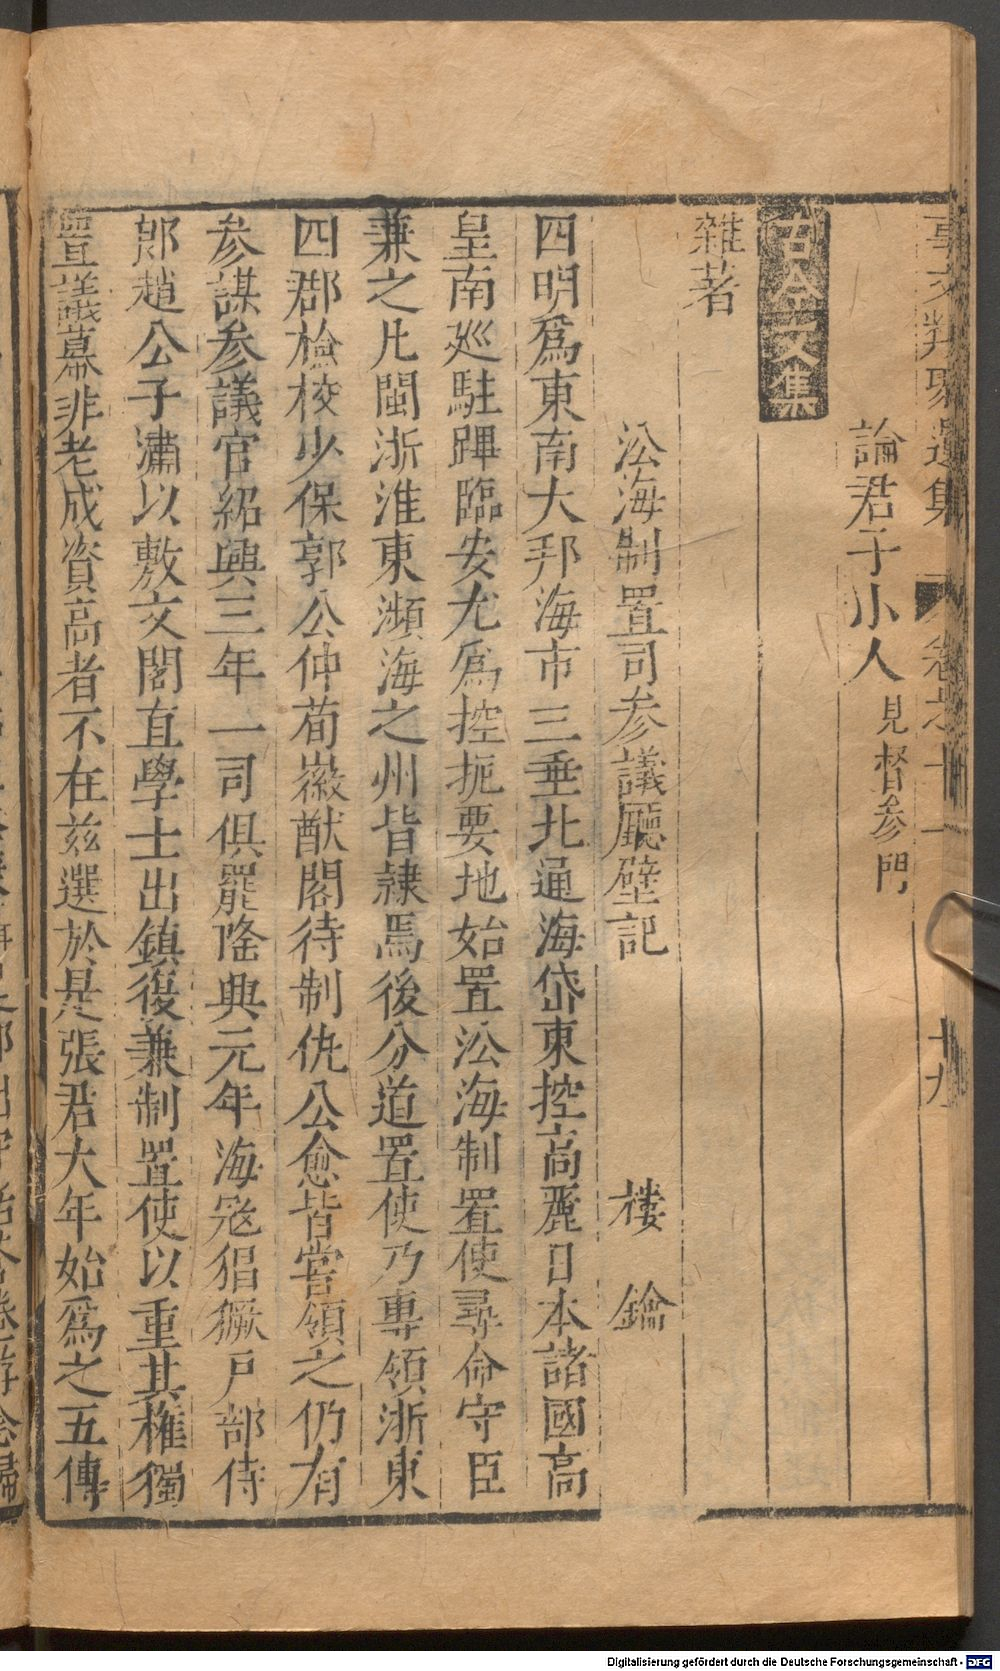 事文類聚遺集 卷之十一 十九
論君子小人見督參門
古今文集
雜著
㳂海制置司参議廳壁記 樓鑰
四明爲東南大邦海市三垂北通海岱東控高麗日本諸國高
皇南廵駐蹕臨安尤爲控扼要地始置㳂海制置使尋命守臣
兼之凡閩浙淮東瀕海之州皆隸焉後分道置使乃專領浙東
四郡檢校少保郭公仲荀徽猷閣待制仇公悆皆嘗領之仍有
参謀参議官紹興三年一司俱罷隆興元年海冦猖獗戸部侍
郎趙公子潚以敷文閣直學士出鎮復兼制置使以重其權獨
置議幕非老成資高者不在兹選於是張君大年始爲之五傳
Digitalisierung gefördert durch die Deutsche Forschungsgemeinschaft - DFG